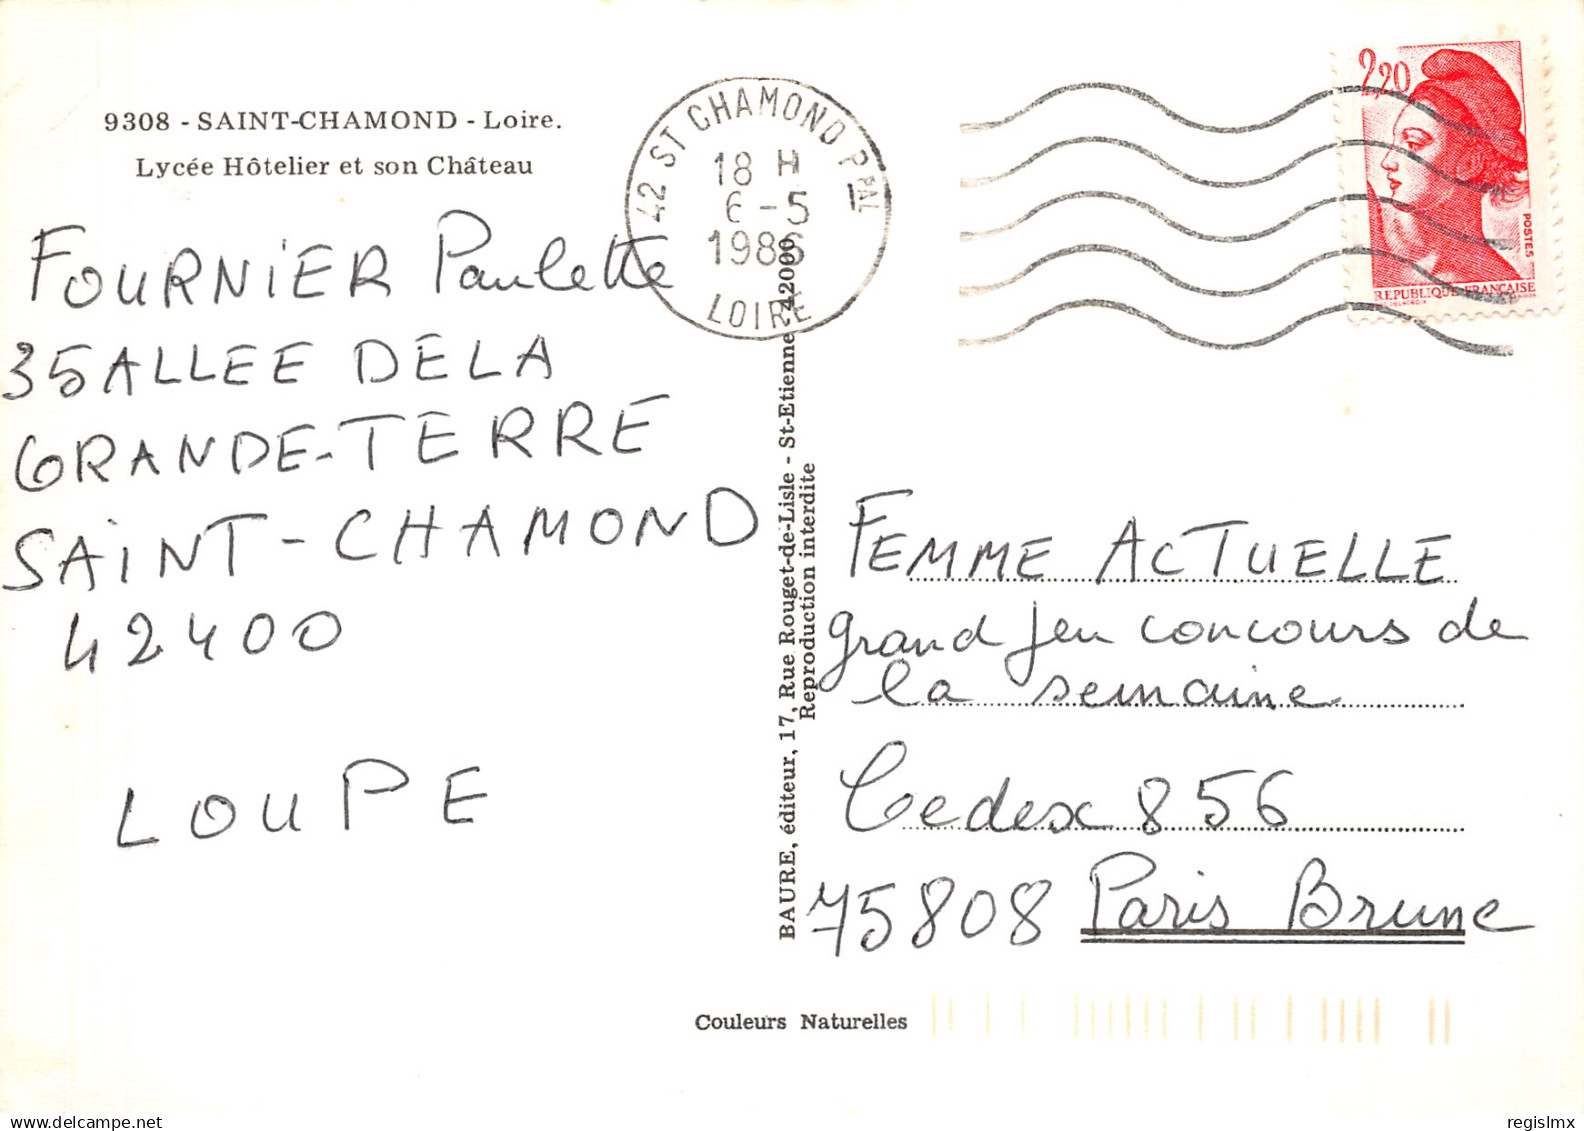 9308 - SAINT-CHAMOND - Loire.
Lycée Hôtelier et son Château
FOURNIER Paulette
35 ALLEE DE LA
GRANDE-TERRE
SAINT-CHAMOND
42400
LOUPE
42 ST CHAMOND PPAL
18 H
6-5
1986
LOIRE
BAURE, éditeur, 17, Rue Rouget-de-Lisle - St-Etienne - 42000
Reproduction interdite
2,20
POSTES
REPUBLIQUE FRANÇAISE
FEMME ACTUELLE
grand Jeu concours de
la semaine
Cedex 856
75808 Paris Brune
Couleurs Naturelles
regislmx